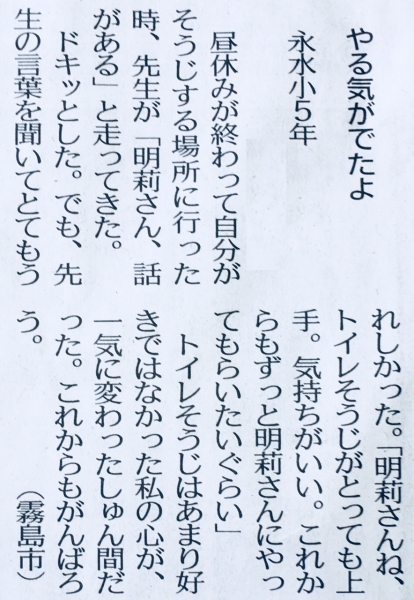 やる気がでたよ
永水小5年
昼休みが終わって自分が
そうじする場所に行った
時、先生が「明莉さん、話
がある」と走ってきた。
ドキッとした。でも、先
生の言葉を聞いてとてもう
れしかった。「明莉さんね、
トイレそうじがとっても上
手。気持ちがいい。これか
らもずっと明莉さんにやっ
てもらいたいぐらい」
トイレそうじはあまり好
きではなかった私の心が、
一気に変わったしゅん間だ
った。これからもがんばろ
う。
（霧島市）